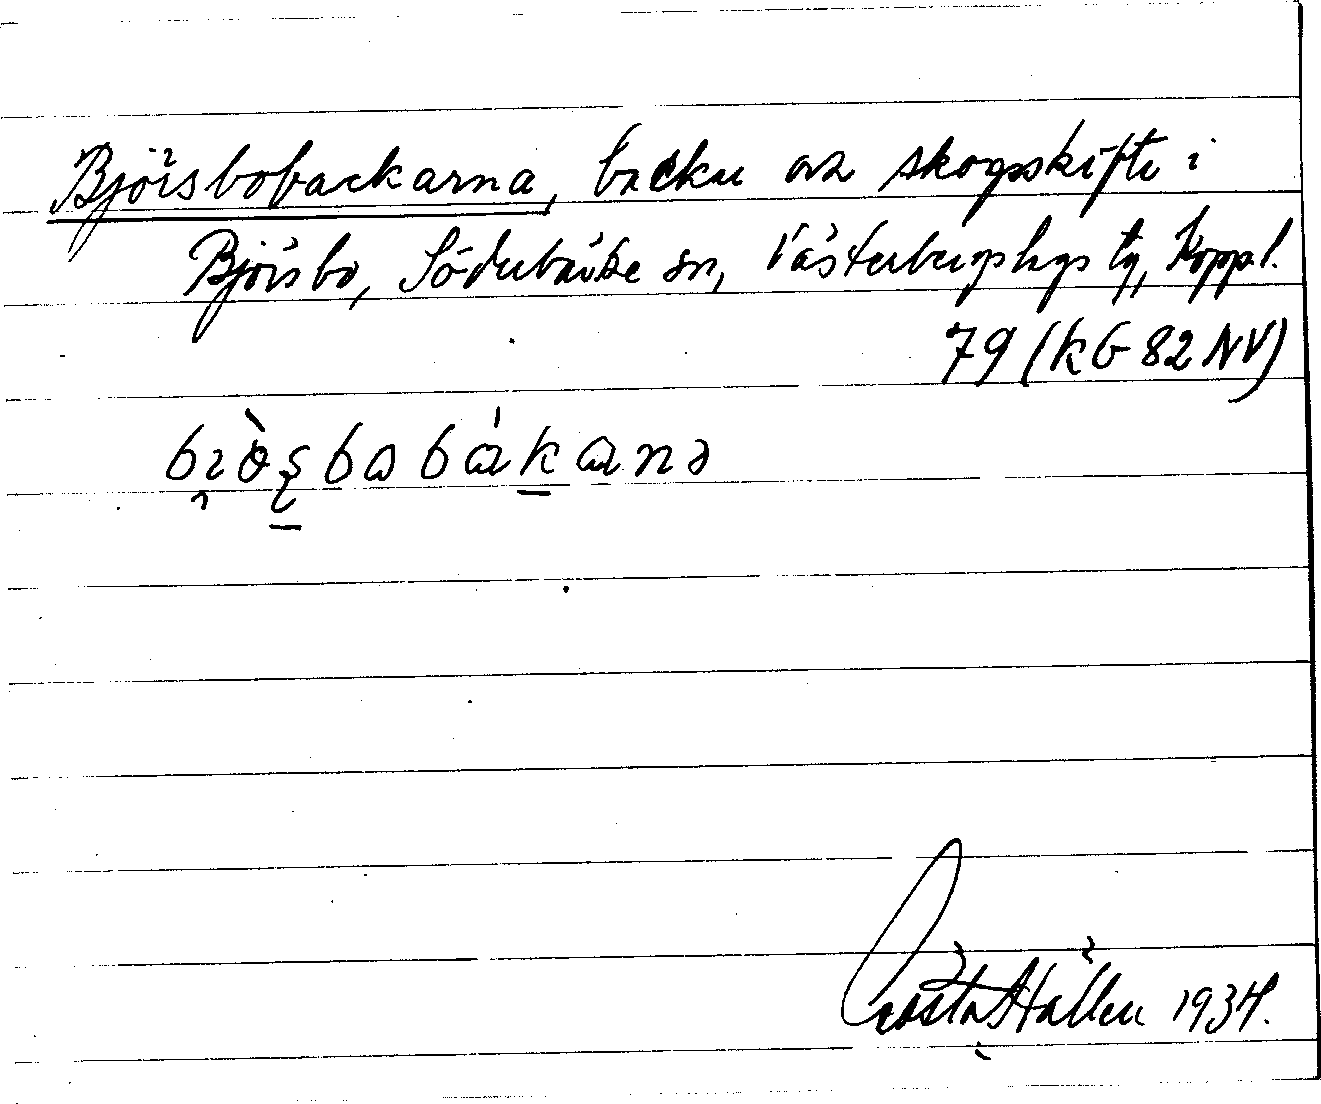 Björsbobackarna, backar o. skogsskifte i
Björsbo, Söderbärke sn, Västerbergslags tg, Koppl.
79 (kb 82 NV)
Gösta Hållen 1934.